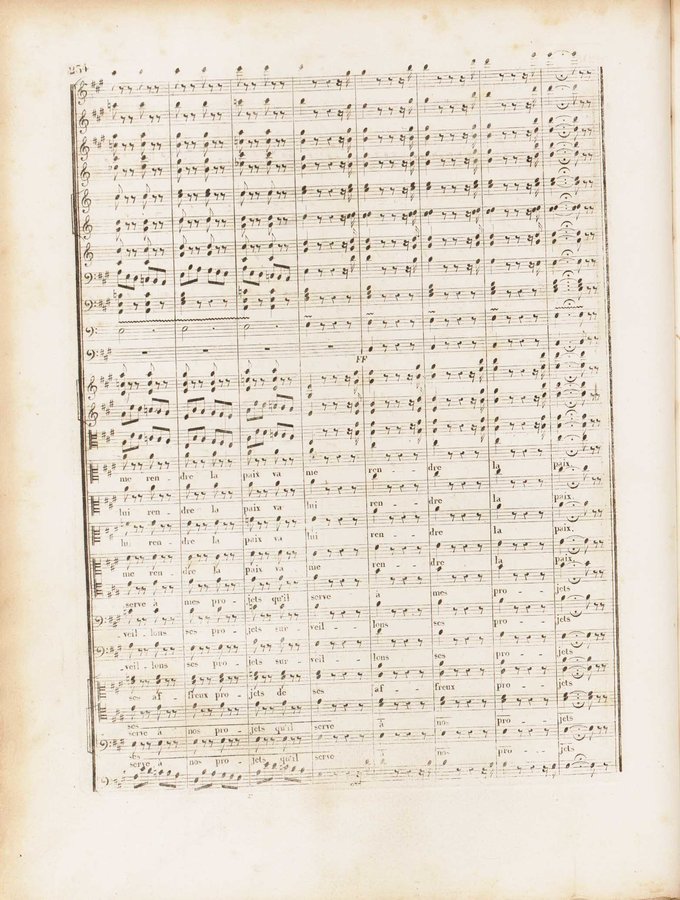 251
FF
me ren - dre la paix va me ren - - dre la paix,
lui ren - dre la paix va lui ren - - dre la paix,
lui ren - dre la paix va lui ren - - dre la paix,
me ren - dre la paix va me ren - - dre la paix,
serve à mes pro - jets qu'il serve à mes pro - jets
_veil - lons ses pro - jets sur - veil - lons ses pro - jets
_veil - lons ses pro - jets sur - veil - lons ses pro - jets
ses af - freux pro - jets de ses af - freux pro - jets
ses
serve à nos pro - jets qu'il serve à nos pro - jets
ses
serve à nos pro - jets qu'il serve à nos pro - - jets